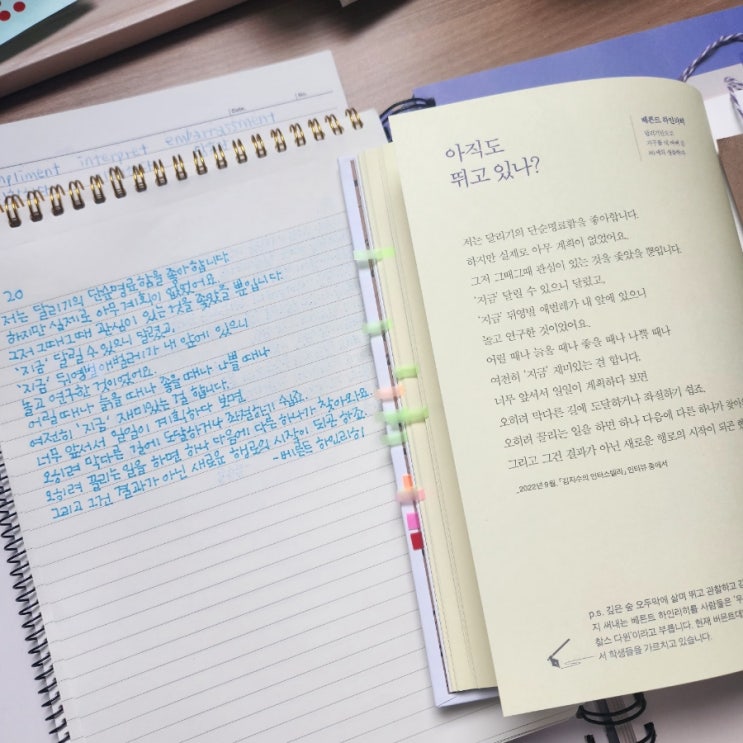 Date
No.
mpliment interpret embarrassment
20
저는 달리기의 단순명료함을 좋아합니다.
하지만 실제로 아무 계획이 없었어요.
그저 그때그때 관심이 있는 것을 좇았을 뿐입니다.
'지금' 달릴 수 있으니 달렸고,
'지금' 뒤영벌 애벌레가 내 앞에 있으니
놀고 연구한 것이었어요.
어릴 때나 늙을 때나 좋을 때나 나쁠 때나
여전히 '지금' 재미있는 걸 합니다.
너무 앞서서 일일이 계획하다 보면
오히려 막다른 길에 도달하거나 좌절하기 쉽죠.
오히려 끌리는 일을 하면 하나 다음에 다른 하나가 찾아와요
그리고 그건 결과가 아닌 새로운 행로의 시작이 되곤 하죠.
-베른트 하인리히
아직도
뛰고 있나?
베른트 하인리히
저는 달리기의 단순명료함을 좋아합니다.
하지만 실제로 아무 계획이 없었어요.
그저 그때그때 관심이 있는 것을 좇았을 뿐입니다.
'지금' 달릴 수 있으니 달렸고,
'지금' 뒤영벌 애벌레가 내 앞에 있으니
놀고 연구한 것이었어요.
어릴 때나 늙을 때나 좋을 때나 나쁠 때나
여전히 '지금' 재미있는 걸 합니다.
너무 앞서서 일일이 계획하다 보면
오히려 막다른 길에 도달하거나 좌절하기 쉽죠.
오히려 끌리는 일을 하면 하나 다음에 다른 하나가 찾아
그리고 그건 결과가 아닌 새로운 행로의 시작이 되곤
_2022년 9월, 「김지수의 인터스텔라」 인터뷰 중에서
p.s. 깊은 숲 오두막에 살며 뛰고 관찰하고
지 써내는 베른트 하인리히를 사람들은
찰스 다윈'이라고 부릅니다. 현재 버몬트대
서 학생들을 가르치고 있습니다.